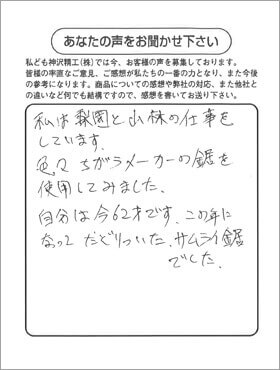 あなたの声をお聞かせ下さい
私ども神沢精工(株)では今、お客様の声を募集しております。
皆様の率直なご意見、ご感想が私たちの一番の力となり、また今後
の参考になります。商品についての感想や弊社の対応、また他社と
の違いなど何でも結構ですので、感想を書いてお送り下さい。
私は梨園と山林の仕事を
しています。
色々ちがうメーカーの鋸を
使用してみました。
自分は今62才です。この年に
なってたどりついた、サムライ鋸
でした。